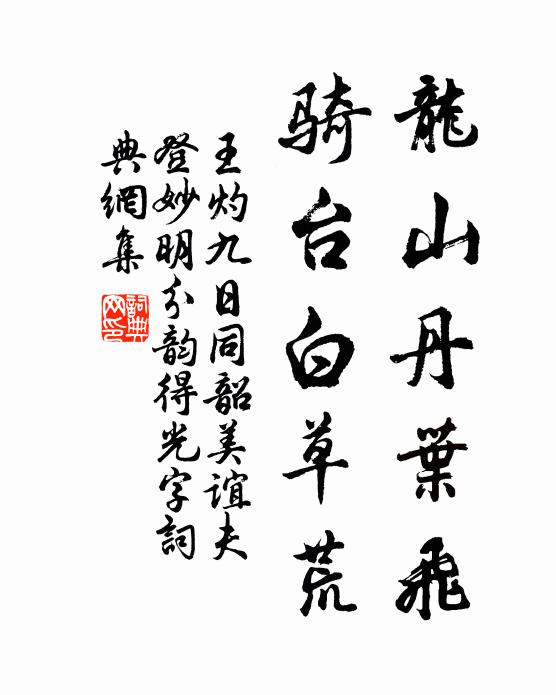 龍山丹葉飛
骑台白草荒
王灼九日同韶美誼夫
登妙明分韵得光字詞
典網集
詞典网印